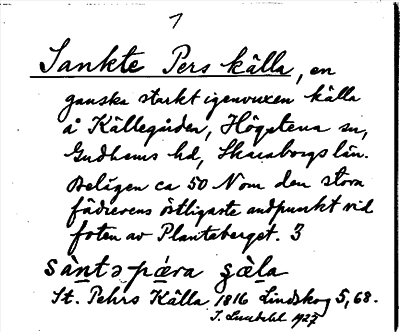 1
Sankte Pers källa, en
ganska starkt igenvuxen källa
å Källegården, Högstena sn,
Gudhems hd, Skaraborgs län.
Belägen ca 50 N om den stora
östligaste ändpunkt vid
foten av Planteberget. 3
sàntə pǽra ɕæ̀la
St. Pehrs Källa 1816 Lindskog 5, 68.
1927